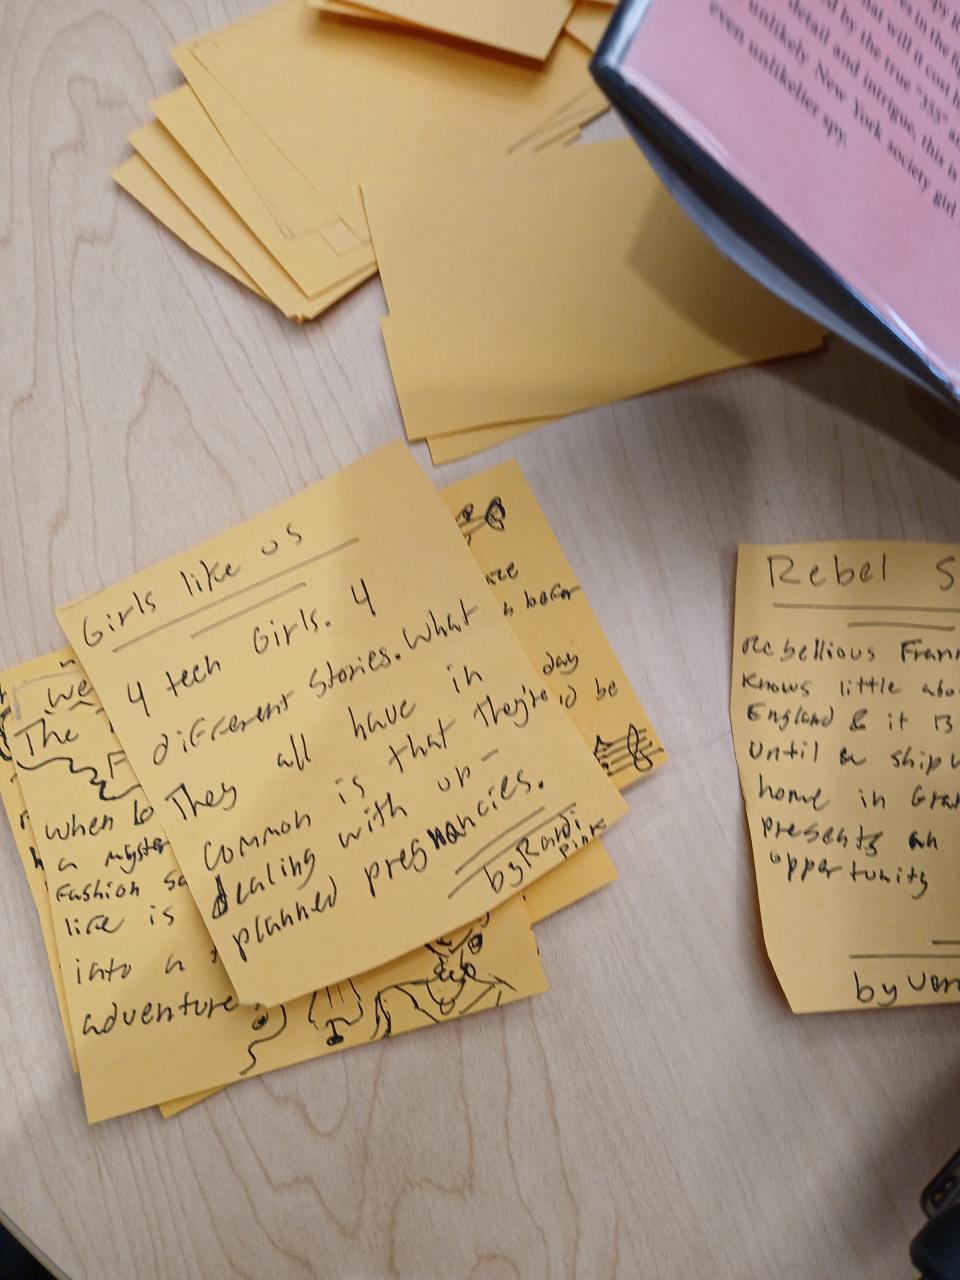 py
es in the
hat will it cost
ed by the true "355" an
detail and intrigue, this is
unlikely New York society girl
even unlikelier spy.
Girls like us
4 tech Girls. 4
different stories. What
They all have in
common is that they're
dealing with un-
planned pregnancies.
by Randi
Pink
ize
day
be
we
The
F
when
a myster
Fashion
life is
into a
adventure
Rebel S
Rebellious Fran
Knows little abo
England & it is
until a ship
home in Gra
presents an
opportunity
by